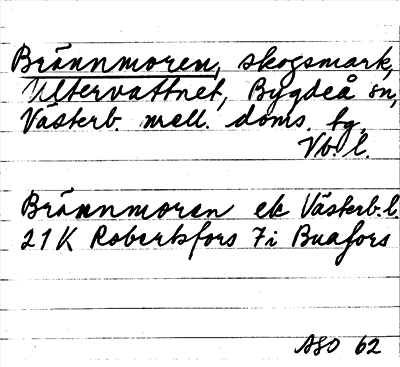 Brännmoren, skogsmark,
Ultervattnet, Bygdeå sn,
Västerb. mell. doms. tg.
Vb. l.
Brännmoren ek Västerb. l.
21K Robertsfors 7i Buafors
ASO 62